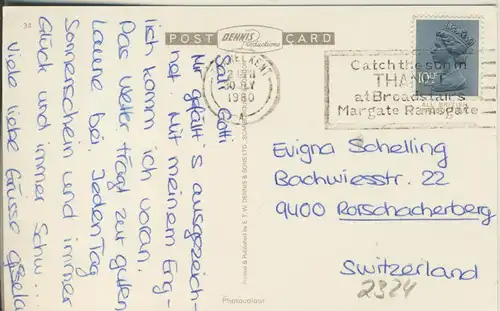 38
POST CARD
DENNIS
Productions
KENT
1980
A
Catch the sun in
THANET
at Broadstairs
Margate Ramsgate
10½P
Gotti
Mir gefällt's ausgezeich-
net. Mit meinem Eng-
lisch komm ich voran.
Das Wetter trägt zur guten
Laune bei. Jeden Tag
Sonnenschein und immer
Glück und immer Schw...
Viele liebe Grüsse Gisela
Evigna Schelling
Bachwiesstr. 22
9400 Rorschacherberg
Switzerland
2324
Printed & Published by E. T. W. DENNIS & SONS LTD.
Photocolour